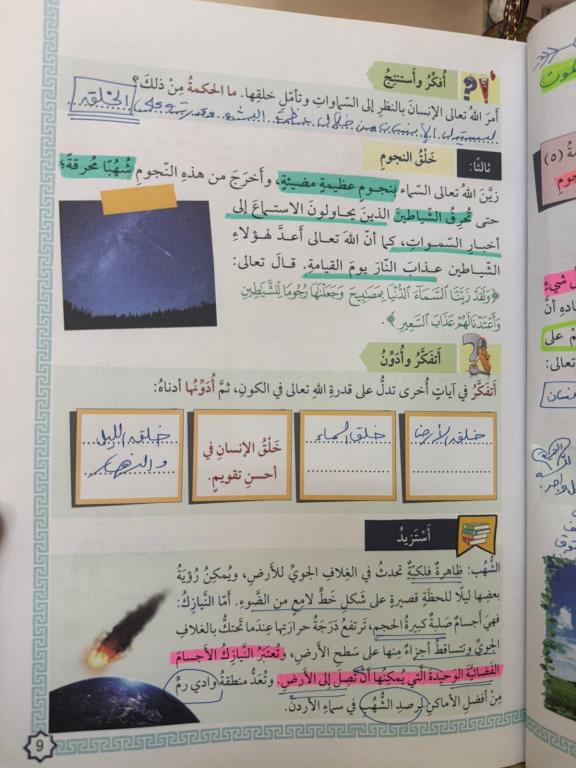 أُفكّرُ وأَستنتِجُ
أمرَ اللهُ تعالى الإنسانَ بالنظرِ إلى السّماواتِ وتأمّلِ خلقِها. ما الحكمةُ مِنْ ذلكَ؟
ليستدل الإنسان من خلال عظمة ... وقدرته على الخلق
ثالثًا: خَلْقُ النجومِ
زيّنَ اللهُ تعالى السّماء بنجومٍ عظيمةٍ مضيئةٍ، وأَخرجَ من هذهِ النّجومِ شُهُبًا مُحرقةً؛
حتى تُحرِقَ الشّياطينَ الذينَ يحاولونَ الاستماعَ إلى
أخبارِ السّمواتِ، كما أنّ اللهَ تعالى أعدَّ لهؤلاءِ
الشّياطين عذابَ النّارِ يومَ القيامةِ. قالَ تعالى:
﴿وَلَقَدْ زَيَّنَّا السَّمَاءَ الدُّنْيَا بِمَصَابِيحَ وَجَعَلْنَاهَا رُجُومًا لِّلشَّيَاطِينِ
وَأَعْتَدْنَا لَهُمْ عَذَابَ السَّعِيرِ﴾.
أَتفكَّرُ وأُدَوِّنُ
أتفكَّرُ في آياتٍ أُخرى تدلُّ على قدرةِ اللهِ تعالى في الكونِ، ثمَّ أُدَوِّنُها أدناهُ:
خلقه الأرض
خلق السماء
خَلْقُ الإنسانِ في
أحسنِ تقويمٍ.
خلقه الليل
والنهار
أَسْتَزيدُ
الشُّهُب: ظاهرةٌ فلكيّةٌ تحدثُ في الغِلافِ الجويِّ للأرضِ، ويُمكِنُ رُؤيَةُ
بعضِها ليلًا للحظَةٍ قصيرةٍ على شكلِ خطٍّ لامعٍ من الضّوءِ. أمّا النَّيازِكُ:
فهيَ أجسامٌ صلبةٌ كبيرةُ الحجمِ، ترتفعُ دَرَجَةُ حرارتِها عِندَما تحتكُّ بالغلافِ
الجويِّ وتتساقطُ أجزاءٌ منها على سَطحِ الأرضِ، وتُعتبَرُ النَّيازِكُ الأجسامَ
الفضائيَّةَ الوَحيدةَ الَّتي يُمكِنُها أنْ تصِلَ إلى الأرضِ. وتُعَدُّ منطقةُ وادي رمٍّ
مِنْ أفضلِ الأماكنِ لرصدِ الشُّهُبِ في سماءِ الأردنّ.
9